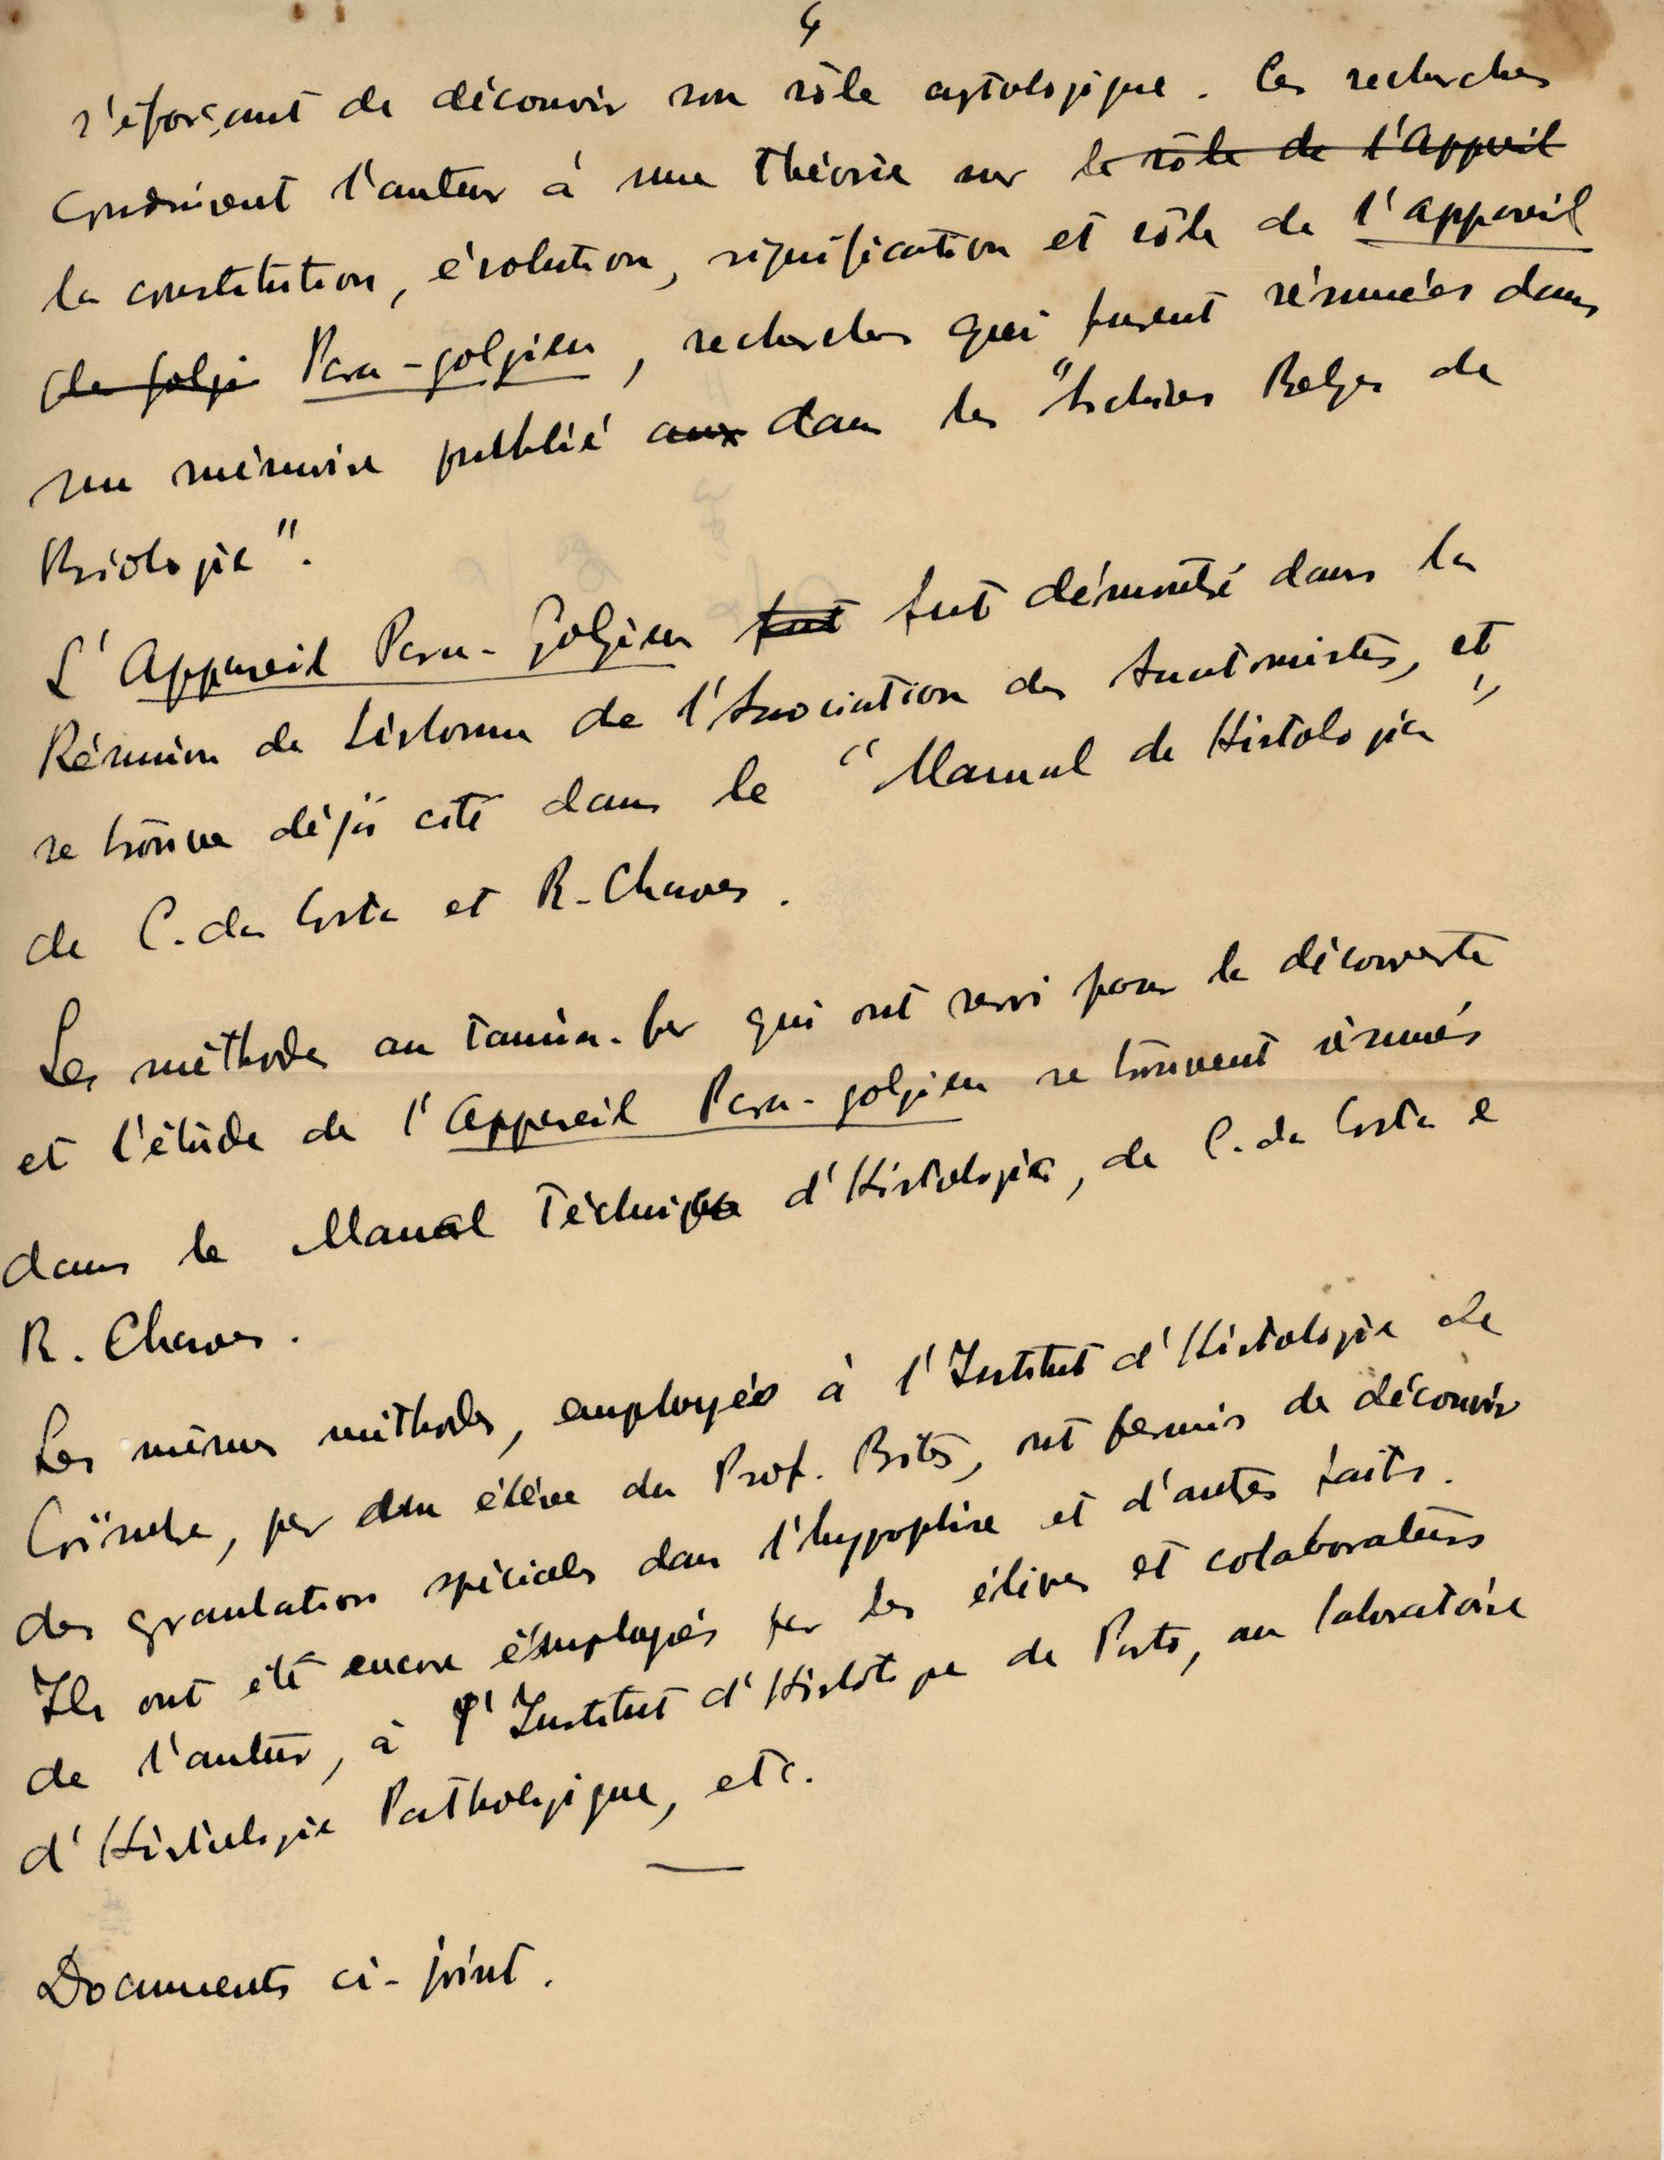 4
s'éforçant de découvrir son rôle cytologique. Ces recherches
conduisent l'auteur à une théorie sur le rôle de l'Appareil
la constitution, évolution, signification et rôle de l'appareil
de Golgi Para-golgien, recherches qui furent résumées dans
un mémoire publié aux dans les "Archives Belges de
Biologie".
L'Appareil Para-Golgien fut fut démontré dans la
Réunion de Lisbonne de l'Association des Anatomistes, et
se trouve déjà cité dans le "Manual de Histologia"
de C. da Costa et R. Chaves.
Les méthodes au tannin-fer qui ont servi pour la découverte
et l'étude de l'Appareil Para-golgien se trouvent résumés
dans le Manual Téchnique d'Histologia, de C. da Costa e
R. Chaves.
Les mêmes méthodes, employés à l'Institut d'Histologie de
Coïmbre, par élève du Prof. Brites, ont permis de découvrir
des granulation spéciales dans l'hypophise et d'autres faits.
Ils ont été encore émployés par les élèves et colaborateurs
de l'auteur, à l'Institut d'Histologie de Porto, au laboratoire
d'Histologie Pathologique, etc.
Documents ci-joint.